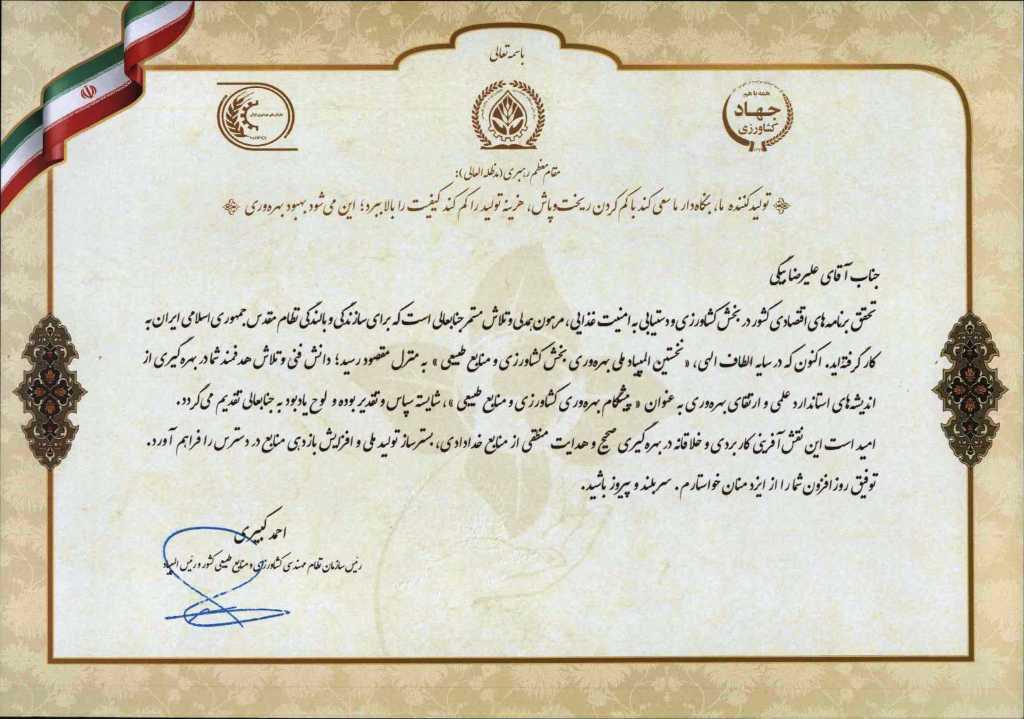 باسمه تعالی
همه با هم
جهاد
کشاورزی
مقام معظم رهبری (مدظله العالی):
تولیدکننده ما، بنگاه‌دار ما سعی کند با کم کردن ریخت‌وپاش، هزینه تولید را کم کند کیفیت را بالا ببرد؛ این می‌شود بهبود بهره‌وری
جناب آقای علیرضا بیگی
تحقق برنامه‌های اقتصادی کشور در بخش کشاورزی و دستیابی به امنیت غذایی، مرهون همدلی و تلاش مستمر جنابعالی است که برای سازندگی و بالندگی نظام مقدس جمهوری اسلامی ایران به
کار گرفته‌اید. اکنون که در سایه الطاف الهی، « نخستین المپیاد ملی بهره‌وری بخش کشاورزی و منابع طبیعی » به منزل مقصود رسید؛ دانش فنی و تلاش هدفمند شما در بهره‌گیری از
اندیشه‌های استاندارد علمی و ارتقای بهره‌وری به عنوان « پیشگام بهره‌وری کشاورزی و منابع طبیعی »، شایسته سپاس و تقدیر بوده و لوح یادبود به جنابعالی تقدیم می‌گردد.
امید است این نقش آفرینی کاربردی و خلاقانه در بهره‌گیری صحیح و هدایت منطقی از منابع خدادادی، بسترساز تولید ملی و افزایش بازدهی منابع در دسترس را فراهم آورد.
توفیق روزافزون شما را از ایزد منان خواستارم. سربلند و پیروز باشید.
احمد کبیری
رئیس سازمان نظام مهندسی کشاورزی و منابع طبیعی کشور و رئیس المپیاد